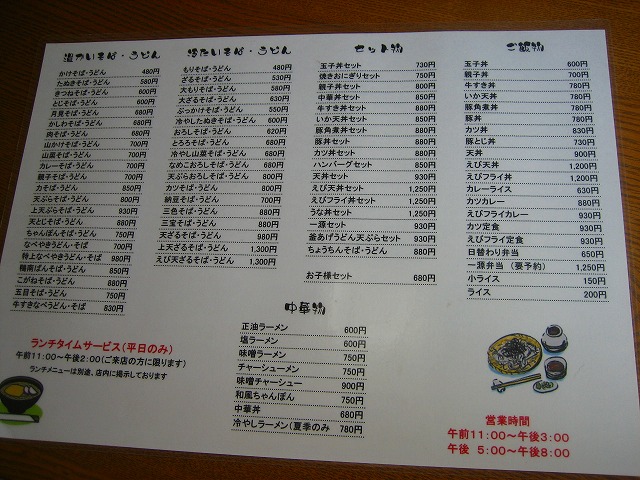 温かいそば・うどん
かけそば・うどん 480円
たぬきそば・うどん 580円
きつねそば・うどん 600円
とじそば・うどん 600円
月見そば・うどん 600円
かしわそば・うどん 680円
肉そば・うどん 680円
山かけそば・うどん 700円
山菜そば・うどん 700円
カレーそば・うどん 700円
親子そば・うどん 700円
力そば・うどん 850円
天ぷらそば・うどん 800円
上天ぷらそば・うどん 930円
天とじそば・うどん 880円
ちゃんぽんそば・うどん 750円
なべやきうどん・そば 700円
特上なべやきうどん・そば 980円
鴨南ばんそば・うどん 850円
こがねそば・うどん 880円
五目そば・うどん 750円
牛すきなべうどん・そば 830円
冷たいそば・うどん
もりそば・うどん 480円
ざるそば・うどん 530円
大もりそば・うどん 580円
大ざるそば・うどん 630円
ぶっかけそば・うどん 550円
冷やしたぬきそば・うどん 600円
おろしそば・うどん 620円
とろろそば・うどん 680円
冷やし山菜そば・うどん 680円
なめこおろしそば・うどん 680円
天ぷらおろしそば・うどん 880円
カツそば・うどん 800円
納豆そば・うどん 700円
三色そば・うどん 880円
三宝そば・うどん 880円
天ざるそば・うどん 980円
上天ざるそば・うどん 1,300円
えび天ざるそば・うどん 1,300円
セット物
玉子丼セット 730円
焼きおにぎりセット 750円
親子丼セット 800円
中華丼セット 850円
牛すき丼セット 880円
いか天丼セット 880円
豚角煮丼セット 880円
豚丼セット 880円
カツ丼セット 880円
ハンバーグセット 850円
天丼セット 930円
えび天丼セット 1,250円
えびフライ丼セット 1,250円
うな丼セット 1,250円
一源セット 930円
釜あげうどん天ぷらセット 930円
ちょうちんそば・うどん 880円
お子様セット 680円
ご飯物
玉子丼 600円
親子丼 700円
牛すき丼 780円
いか天丼 780円
豚角煮丼 780円
豚丼 780円
カツ丼 830円
豚とじ丼 730円
天丼 900円
えび天丼 1,200円
えびフライ丼 1,200円
カレーライス 630円
カツカレー 880円
えびフライカレー 930円
カツ定食 930円
えびフライ定食 930円
日替わり弁当 650円
一源弁当 (要予約) 1,250円
小ライス 150円
ライス 200円
中華物
正油ラーメン 600円
塩ラーメン 600円
味噌ラーメン 750円
チャーシューメン 750円
味噌チャーシュー 900円
和風ちゃんぽん 750円
中華丼 680円
冷やしラーメン(夏季のみ 780円
ランチタイムサービス(平日のみ)
午前11:00~午後2:00(ご来店の方に限ります)
ランチメニューは別途、店内に掲示しております
営業時間
午前11:00~午後3:00
午後 5:00~午後8:00